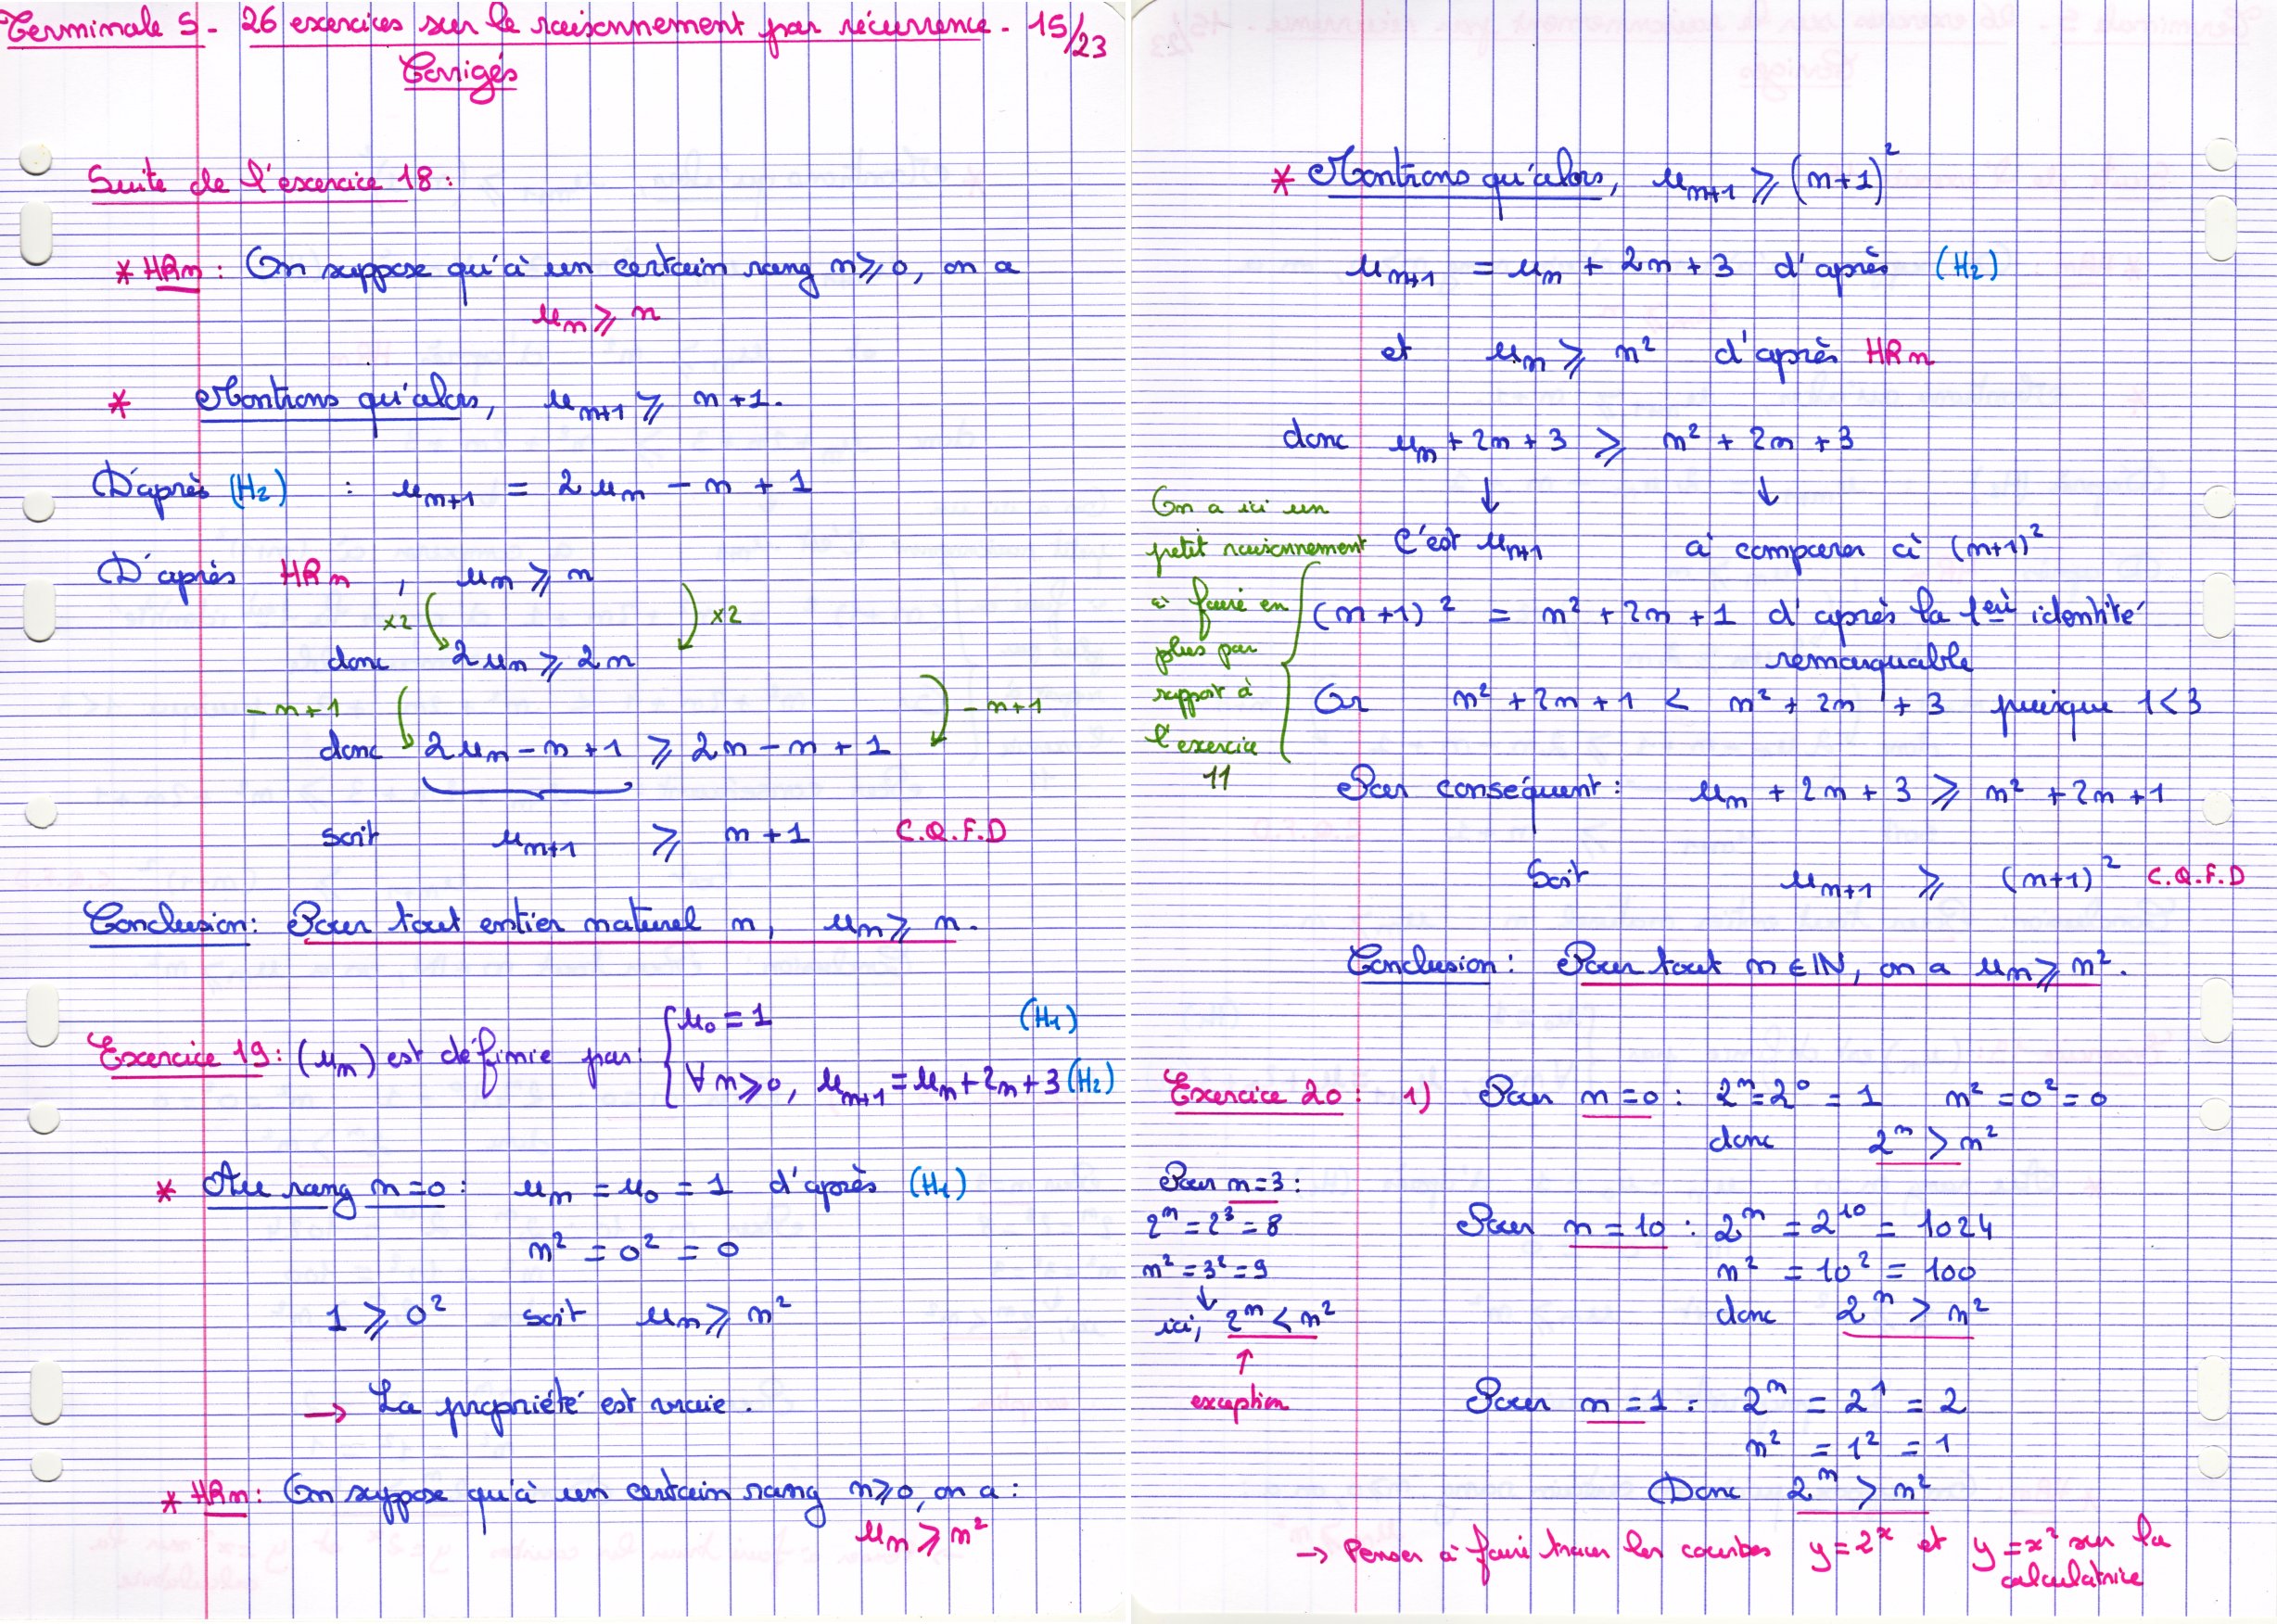 Terminale S - 26 exercices sur le raisonnement par récurrence - 15/23
Corrigés
Suite de l'exercice 18 :
* HRn : On suppose qu'à un certain rang n ⩾ 0, on a
un ⩾ n
* Montrons qu'alors, un+1 ⩾ n+1.
D'après (H2) : un+1 = 2un - n + 1
D'après HRn, un ⩾ n
×2 ×2
donc 2un ⩾ 2n
-n+1 -n+1
donc 2un - n + 1 ⩾ 2n - n + 1
soit un+1 ⩾ n+1 C.Q.F.D
Conclusion : Pour tout entier naturel n, un ⩾ n.
Exercice 19 : (un) est définie par : { u0 = 1 (H1)
∀ n ⩾ 0, un+1 = un + 2n + 3 (H2)
* Au rang n=0 : un = u0 = 1 d'après (H1)
n² = 0² = 0
1 ⩾ 0² soit un ⩾ n²
→ La propriété est vraie.
* HRn : On suppose qu'à un certain rang n ⩾ 0, on a :
un ⩾ n²
* Montrons qu'alors, un+1 ⩾ (n+1)²
un+1 = un + 2n + 3 d'après (H2)
et un ⩾ n² d'après HRn
donc un + 2n + 3 ⩾ n² + 2n + 3
↓ ↓
C'est un+1 à comparer à (n+1)²
On a ici un
petit raisonnement
à faire en
plus par
rapport à
l'exercice
11
(n+1)² = n² + 2n + 1 d'après la 1ère identité
remarquable
Or n² + 2n + 1 < n² + 2n + 3 puisque 1 < 3
Par conséquent : un + 2n + 3 ⩾ n² + 2n + 1
Soit un+1 ⩾ (n+1)² C.Q.F.D
Conclusion : Pour tout n ∈ ℕ, on a un ⩾ n².
Exercice 20 : 1) Pour n=0 : 2ⁿ = 2⁰ = 1 n² = 0² = 0
donc 2ⁿ > n²
Pour n=3 :
2ⁿ = 2³ = 8
n² = 3² = 9
↓
ici, 2ⁿ < n²
↑
exception
Pour n = 10 : 2ⁿ = 2¹⁰ = 1024
n² = 10² = 100
donc 2ⁿ > n²
Pour n=1 : 2ⁿ = 2¹ = 2
n² = 1² = 1
Donc 2ⁿ > n²
→ Penser à faire tracer les courbes y = 2ˣ et y = x² sur la
calculatrice